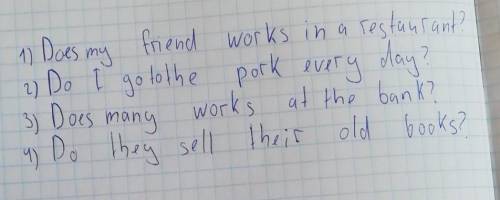 1) Does my friend works in a restaurant?
2) Do I gotothe pork every day?
3) Does many works at the bank?
4) Do they sell their old books?